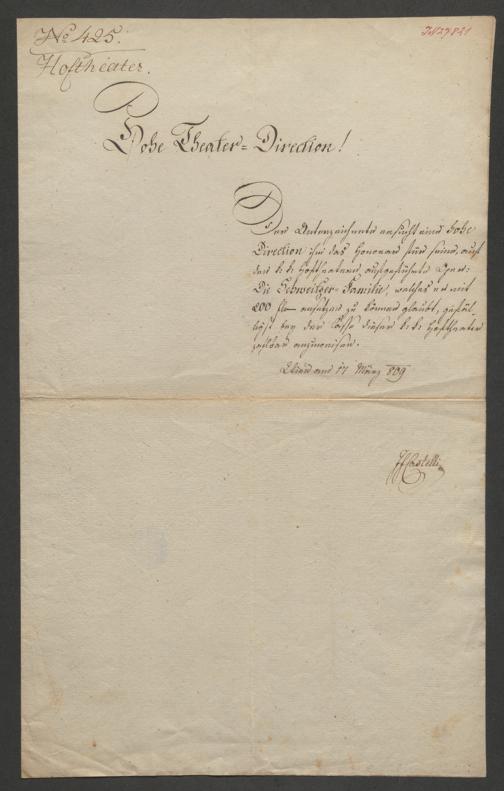 No 425.
Hoftheater.
Hohe Theater=Direction!
Der Unterzeichnete ersucht eine hohe
Direction ihm das Honorar für seine, auf
den k. k. Hoftheatern, aufgeführte Oper:
Die Schweitzer=Familie, welches er mit
200 fl ansetzen zu können glaubt, gefäl
ligst bey der Cassa dieser k. k. Hoftheater
zahlbar anzuweisen.
Wien am 17 März 809
JFCastelli